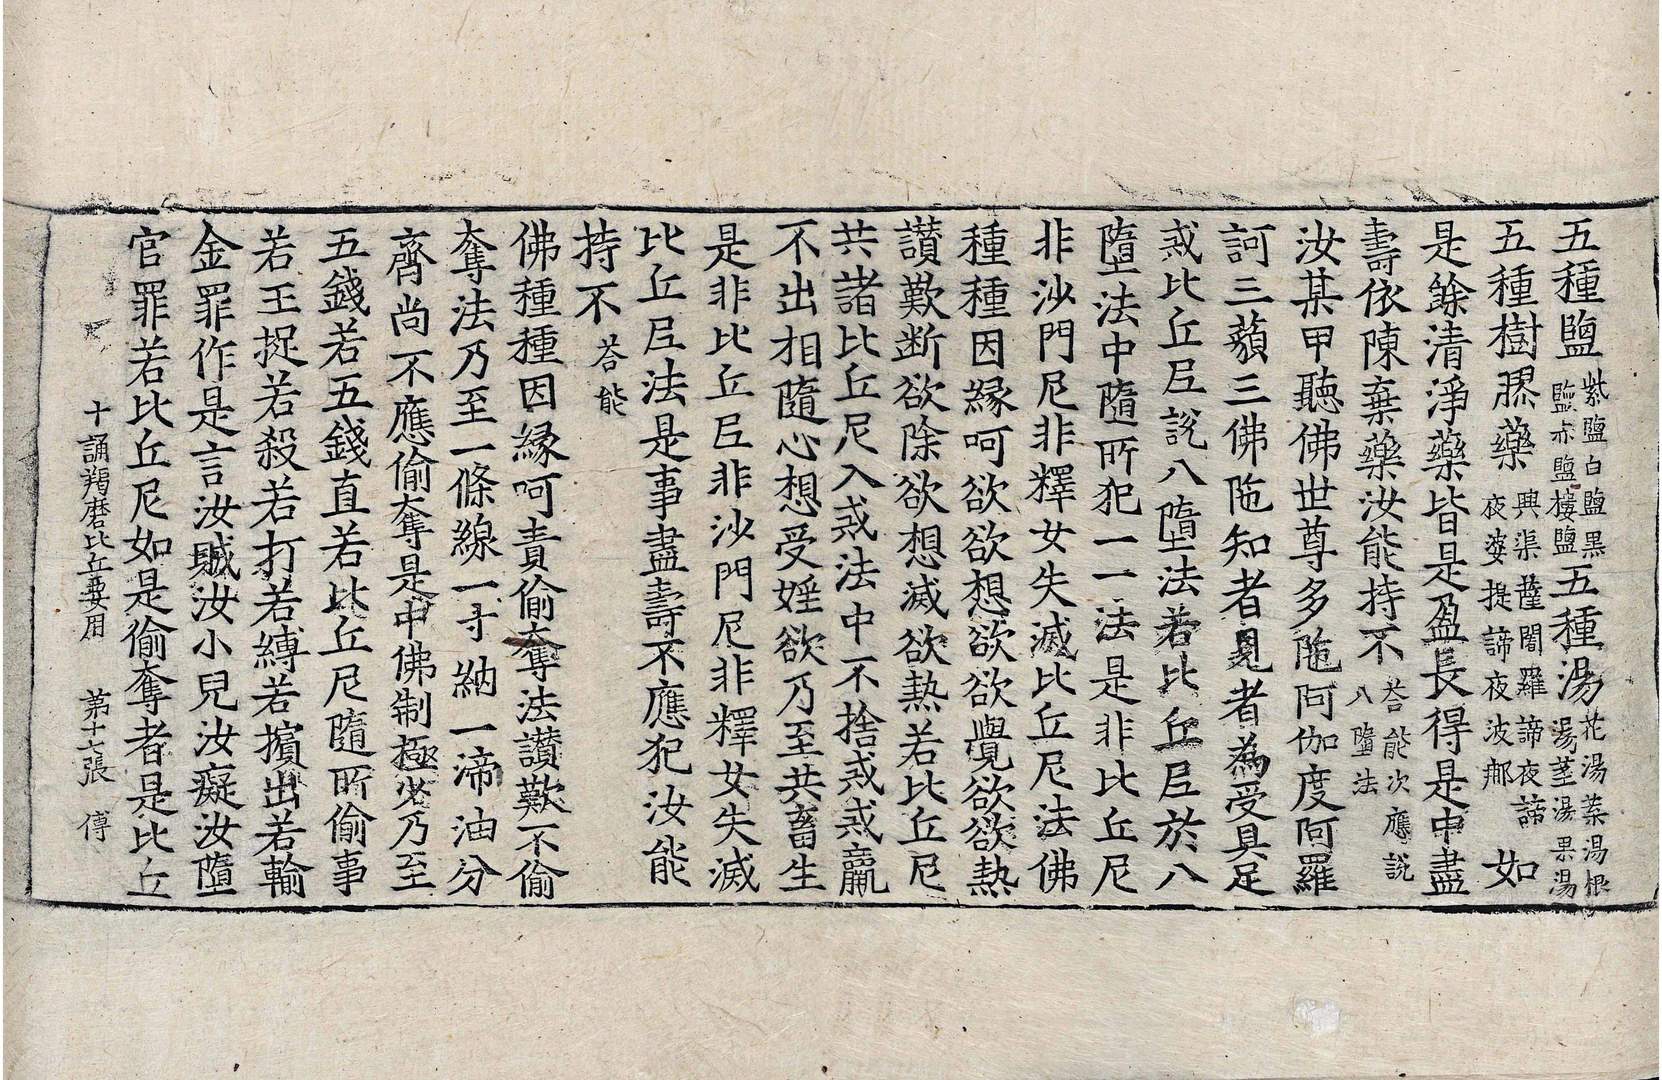 五種鹽紫鹽白鹽黑鹽赤鹽樓鹽五種湯花湯葉湯根湯莖湯果湯
五種樹膠藥興渠薩闍羅諦夜諦夜波提諦夜波郍夜婆如
是餘清淨藥皆是盈長得是中盡
壽依陳棄藥汝能持不荅能次應說八墮法
汝某甲聽佛世尊多陁阿伽度阿羅
訶三藐三佛陁知者見者為受具足
戒比丘尼說八墮法若比丘尼於八
墮法中隨所犯一一法是非比丘尼
非沙門尼非釋女失滅比丘尼法佛
種種因緣呵欲欲想欲欲覺欲欲熱
讃歎断欲除欲想滅欲熱若比丘尼
共諸比丘尼入戒法中不捨戒戒羸
不出相隨心想受婬欲乃至共畜生
是非比丘尼非沙門尼非釋女失滅
比丘尼法是事盡壽不應犯汝能
持不荅能
佛種種因緣呵責偷奪法讃歎不偷
奪法乃至一條線一寸納一渧油分
齊尚不應偷奪是中佛制極少乃至
五錢若五錢直若比丘尼隨所偷事
若王捉若殺若打若縛若擯出若輸
金罪作是言汝賊汝小兒汝癡汝墮
官罪若比丘尼如是偷奪者是比丘
十誦羯磨比丘要用 第十六張 傳